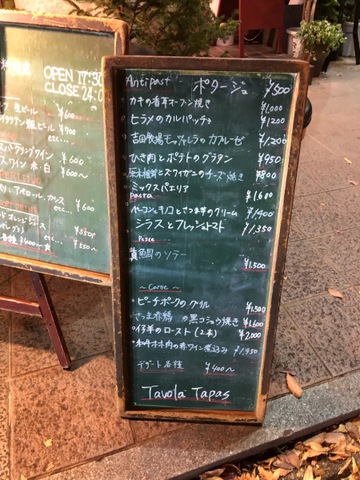 OPEN 17:30
CLOSE 24:0
生ビール ¥600
ビール ¥700
スパークリングワイン ¥600
スワイン 赤・白 ¥600〜
etc... ¥600
etc...
Antipast ポタージュ ¥500
カキの香草オーブン焼き ¥1000
・ヒラメのカルパッチョ ¥1200
・吉田牧場モッツァレラのカプレーゼ ¥1200
ひき肉とポテトのグラタン ¥950
ズワイガニのチーズ焼き ¥800
・ミックスパエリア ¥1,600
Pasta
・ベーコンとキノコとさつま芋のクリーム ¥1400
・シラスとフレッシュトマト ¥1,350
Pesce
のソテー ¥1,500
〜Carne〜
・ピーチポークのグリル ¥1,500
・さつま赤鶏の黒コショウ焼き ¥1,600
・仔羊のロースト(2本) ¥2,000
・和牛ホホ肉の赤ワイン煮込み ¥1,950
デザート各種 ¥400〜
Tavola Tapas